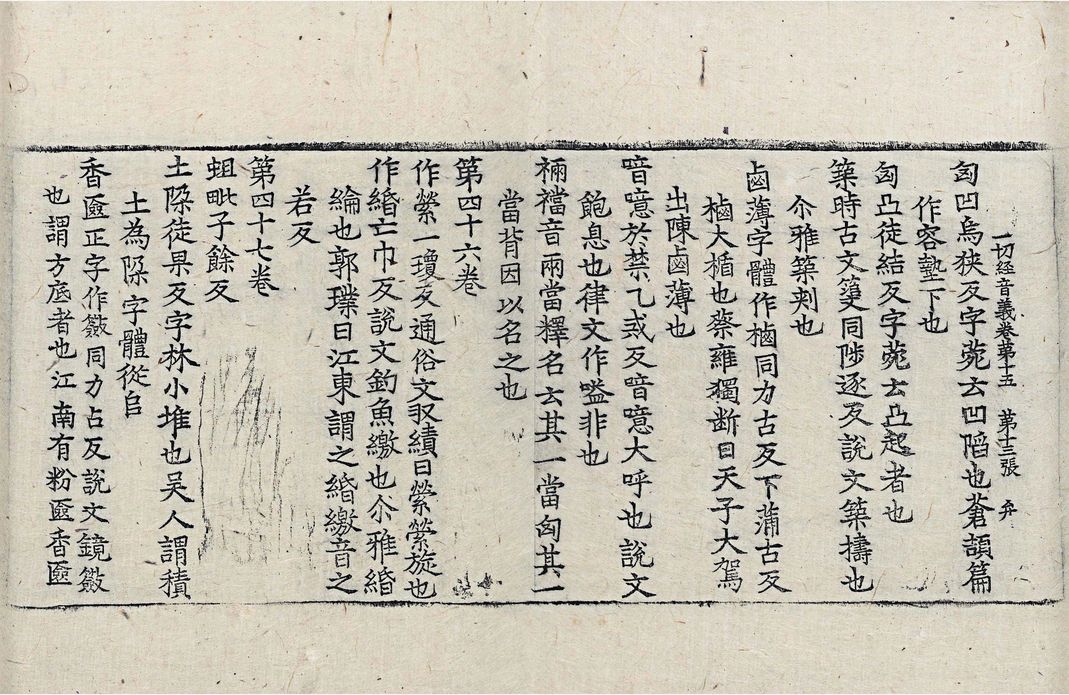 一切経音義卷第十五 第十三張 弁
匈凹烏狹反字菀云凹陷也蒼頡篇
作容墊下也
匈凸徒結反字菀云凸起者也
築時古文䈞同陟逐反說文築擣也
尒雅築剌也
鹵薄字體作樐同力古反下蒲古反
樐大楯也蔡雍獨斷曰天子大駕
出陳鹵薄也
喑噫於禁乙戒反喑噫大呼也說文
飽息也律文作嗌非也
裲襠音兩當釋名云其一當匈其一
當背因以名之也
第四十六卷
作縈一瓊反通俗文収績曰縈縈旋也
作緡亡巾反說文釣魚繳也尒雅緡
綸也郭璞曰江東謂之緡繳音之
若反
第四十七卷
蛆毗子餘反
土㙐徒果反字林小堆也吳人謂積
土為㙐字體從𨸏
香匳正字作籢同力占反說文鏡籢
也謂方底者也江南有粉匳香匳